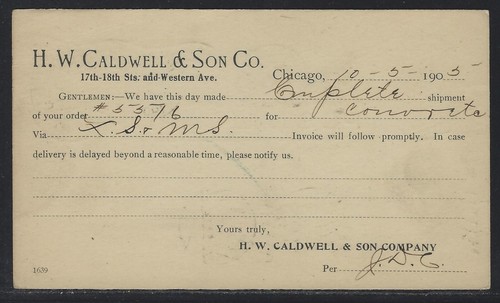 H. W. CALDWELL & SON CO.
17th-18th Sts. and Western Ave.
Chicago, 10-5-1905
GENTLEMEN:—We have this day made Complete shipment
of your order #5576 for
Via L. S. & M S. Invoice will follow promptly. In case
delivery is delayed beyond a reasonable time, please notify us.
Yours truly,
H. W. CALDWELL & SON COMPANY
Per J. D. C.
1639